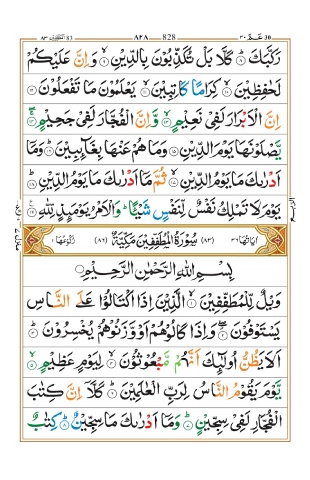 المطففين ٨٣ ٨٢٨ 828 عمّ ٣٠ 30
رَكَّبَكَ ۝ كَلَّا بَلْ تُكَذِّبُوْنَ بِالدِّيْنِ ۝ وَاِنَّ عَلَيْكُمْ
لَحٰفِظِيْنَ ۝ كِرَامًا كَاتِبِيْنَ ۝ يَعْلَمُوْنَ مَا تَفْعَلُوْنَ ۝
اِنَّ الْاَبْرَارَ لَفِيْ نَعِيْمٍ ۝ وَّاِنَّ الْفُجَّارَ لَفِيْ جَحِيْمٍ ۝
يَّصْلَوْنَهَا يَوْمَ الدِّيْنِ ۝ وَمَا هُمْ عَنْهَا بِغَآئِبِيْنَ ۝ وَمَآ
اَدْرٰىكَ مَا يَوْمُ الدِّيْنِ ۝ ثُمَّ مَآ اَدْرٰىكَ مَا يَوْمُ الدِّيْنِ ۝
يَوْمَ لَا تَمْلِكُ نَفْسٌ لِّنَفْسٍ شَيْـًٔا ؕ وَالْاَمْرُ يَوْمَىِٕذٍ لِّلّٰهِ ۝
اٰيَاتُهَا ٣٦ (٨٣) سُوْرَةُ الْمُطَفِّفِيْنَ مَكِّيَّةٌ (٨٦) رُكُوْعُهَا ١
بِسْمِ اللّٰهِ الرَّحْمٰنِ الرَّحِيْمِ
وَيْلٌ لِّلْمُطَفِّفِيْنَ ۝ الَّذِيْنَ اِذَا اكْتَالُوْا عَلَى النَّاسِ
يَسْتَوْفُوْنَ ۝ وَاِذَا كَالُوْهُمْ اَوْ وَّزَنُوْهُمْ يُخْسِرُوْنَ ۝
اَلَا يَظُنُّ اُولٰٓىِٕكَ اَنَّهُمْ مَّبْعُوْثُوْنَ ۝ لِيَوْمٍ عَظِيْمٍ ۝
يَّوْمَ يَقُوْمُ النَّاسُ لِرَبِّ الْعٰلَمِيْنَ ۝ كَلَّآ اِنَّ كِتٰبَ
الْفُجَّارِ لَفِيْ سِجِّيْنٍ ۝ وَمَآ اَدْرٰىكَ مَا سِجِّيْنٌ ۝ كِتٰبٌ